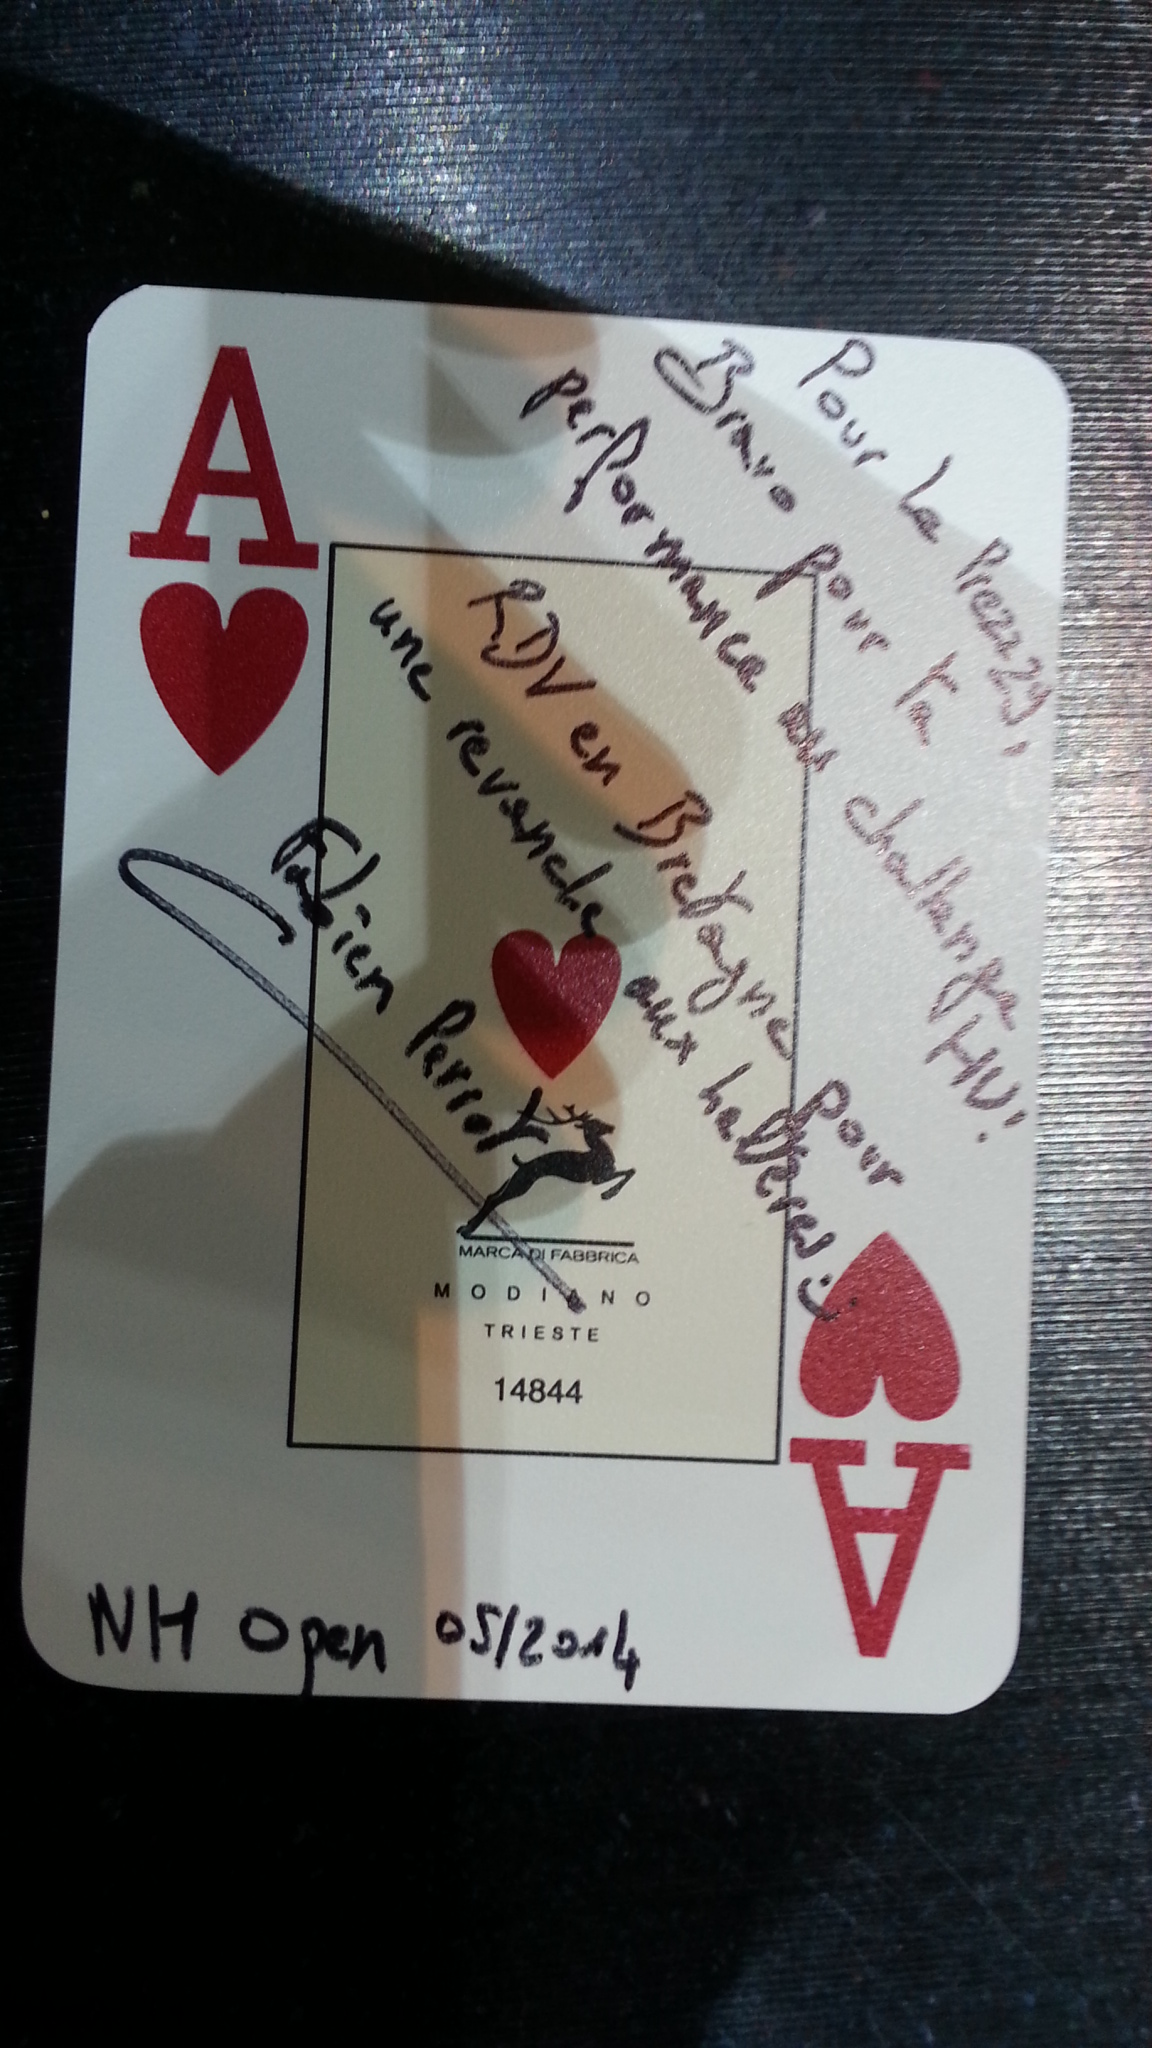 A
Pour la Prezz29,
Bravo pour ta
performance au challenge HU!
RDV en Bretagne pour
une revanche aux haltères :)
Fabien Perrot
MARCA DI FABBRICA
MODIANO
TRIESTE
14844
A
NH Open 05/2014